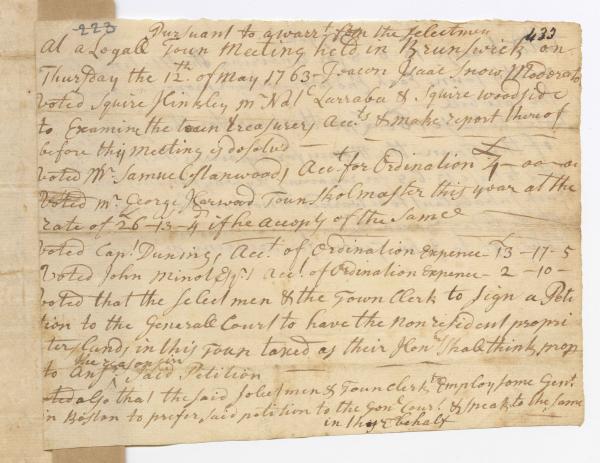 223
433
Pursuant to a warrt from the selectmen
At a Legall Town Meeting held in Brunswick on
Thursday the 12th. of May 1763 - Deacon Isaac Snow Moderato
Voted Squire Hinkley mr Nd Larrabee & Squire woodside
to Examine the town treasurers Accts & make report thereof
before this meeting is desolved
Voted Mr. Samuel Stanwoods Acct for Ordination £4-00-00
Voted mr George Harwood Town Skolmaster this year at the
rate of 26-13-4 if he accepts of the Same
Voted Capt Dunings Acct. of Ordination Expence £3-17-5
Voted John Minot Esqrs acct. of Ordination Expence - 2-10-
Voted that the selectmen & the Town Clerk to sign a Peti
tion to the Generall Court to have the nonresident propri
ters Lands in this Town taxed as their Honrs Shall think prop
to Ans said Petition
voted also that the said selectmen & Town Clerk to Employ some Gent.
in Boston to prefer said petition to the Genl Court & speak to the same
in their behalf